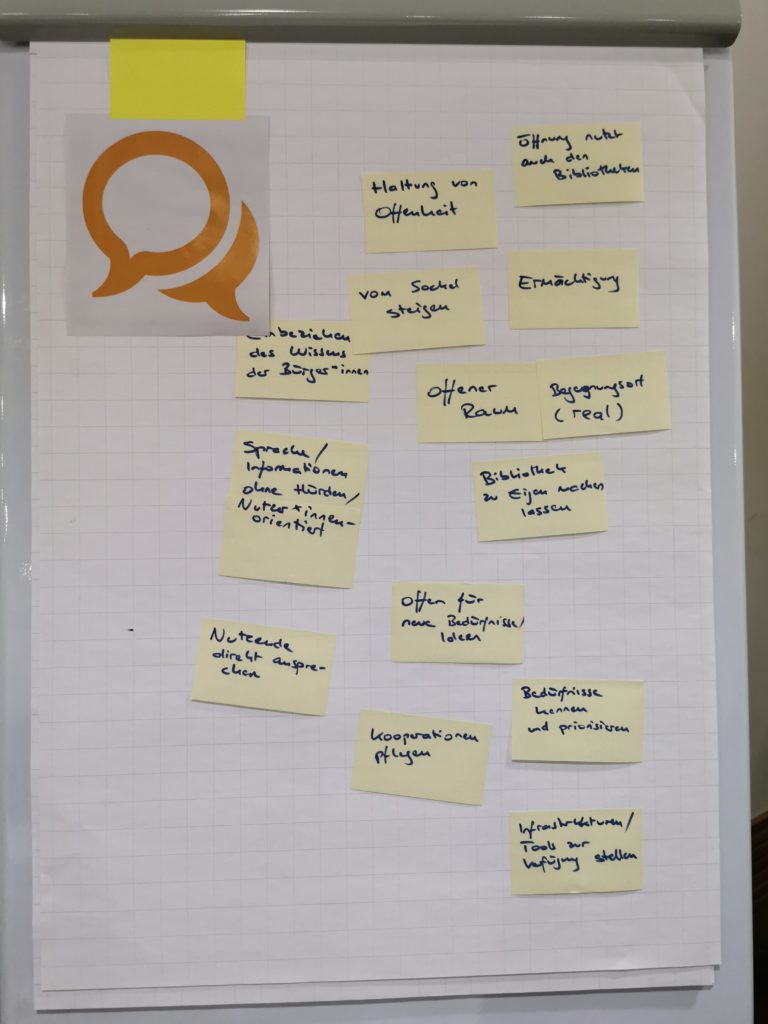 Öffnung nutzt
auch den
Bibliotheken
Haltung von
Offenheit
vom Sockel
steigen
Ermächtigung
Einbeziehen
des Wissens
der Bürger*innen
Offener
Raum
Begegnungsort
(real)
Sprache/
Informationen
ohne Hürden/
Nutzer*innen-
orientiert
Bibliothek
zu Eigen machen
lassen
Offen für
neue Bedürfnisse/
Ideen
Nutzende
direkt anspre-
chen
Bedürfnisse
kennen
und priorisieren
Kooperationen
pflegen
Infrastrukturen/
Tools zur
Verfügung stellen